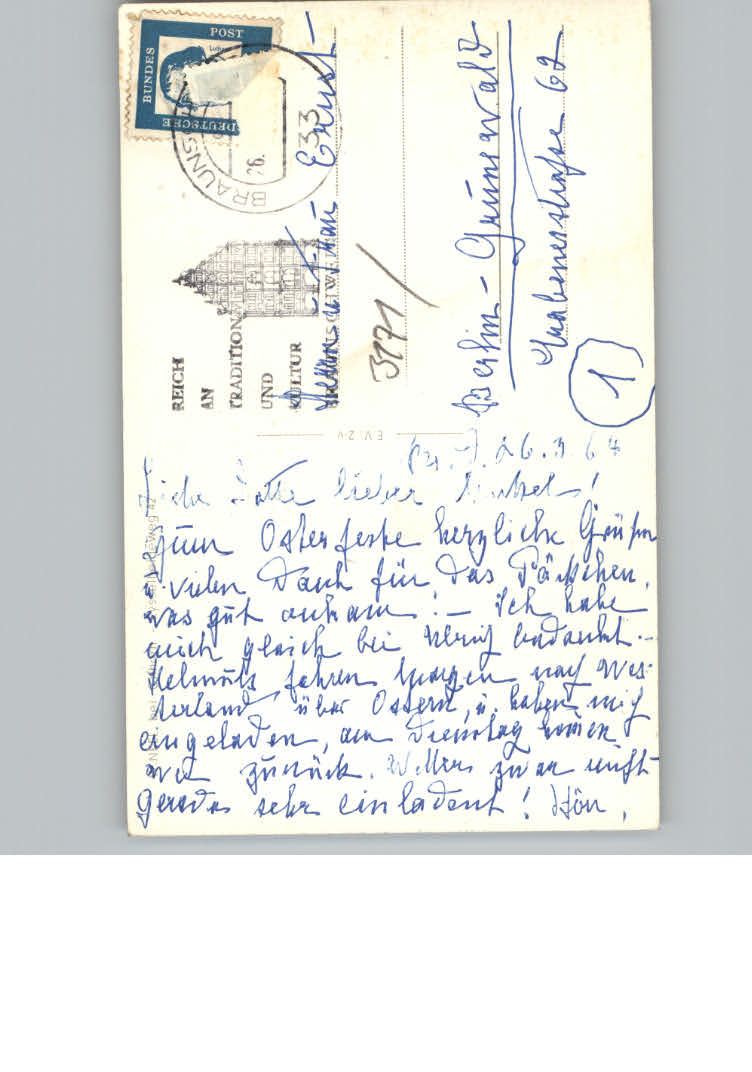 DEUTSCHE
BUNDES
POST
BRAUNSCH
33
26.
REICH
AN
TRADITION
UND
KULTUR
BRAUNSCHWEIG
Herrn u. Frau Ernst
3171/
Berlin - Grunewald
62
1
E.V.Z.V.
26.3.64
Liebe Lotte lieber
Zum Osterfeste herzliche Grüße
u. vielen Dank für das Päckchen,
was gut ankam! - Ich habe
mich gleich bei bedankt. -
Helmuts fahren morgen nach Wes-
terland über Ostern, u. haben mich
eingeladen, am Dienstag kommen
wir zurück. Wetter zwar nicht
gerade sehr einladent!